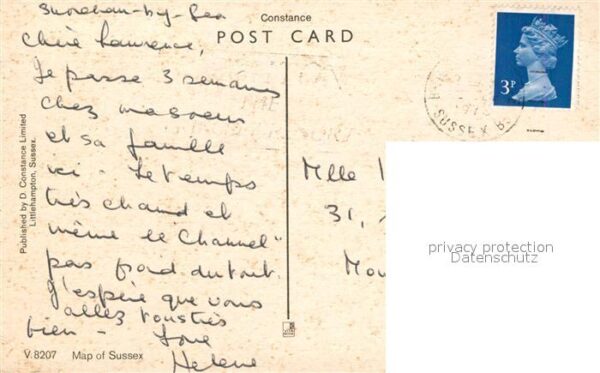 Shoreham-by-Sea
Chère Laurence,
Je passe 3 semaines
chez ma soeur
et sa famille
ici - Le temps
très chaud et
même le "Channel"
pas froid du tout.
J'espère que vous
allez tous très
bien - Love
Helene
V.8207 Map of Sussex
Published by D. Constance Limited
Littlehampton, Sussex.
Constance
POST CARD
3P
SUSSEX
Mlle
31,
privacy protection
Datenschutz